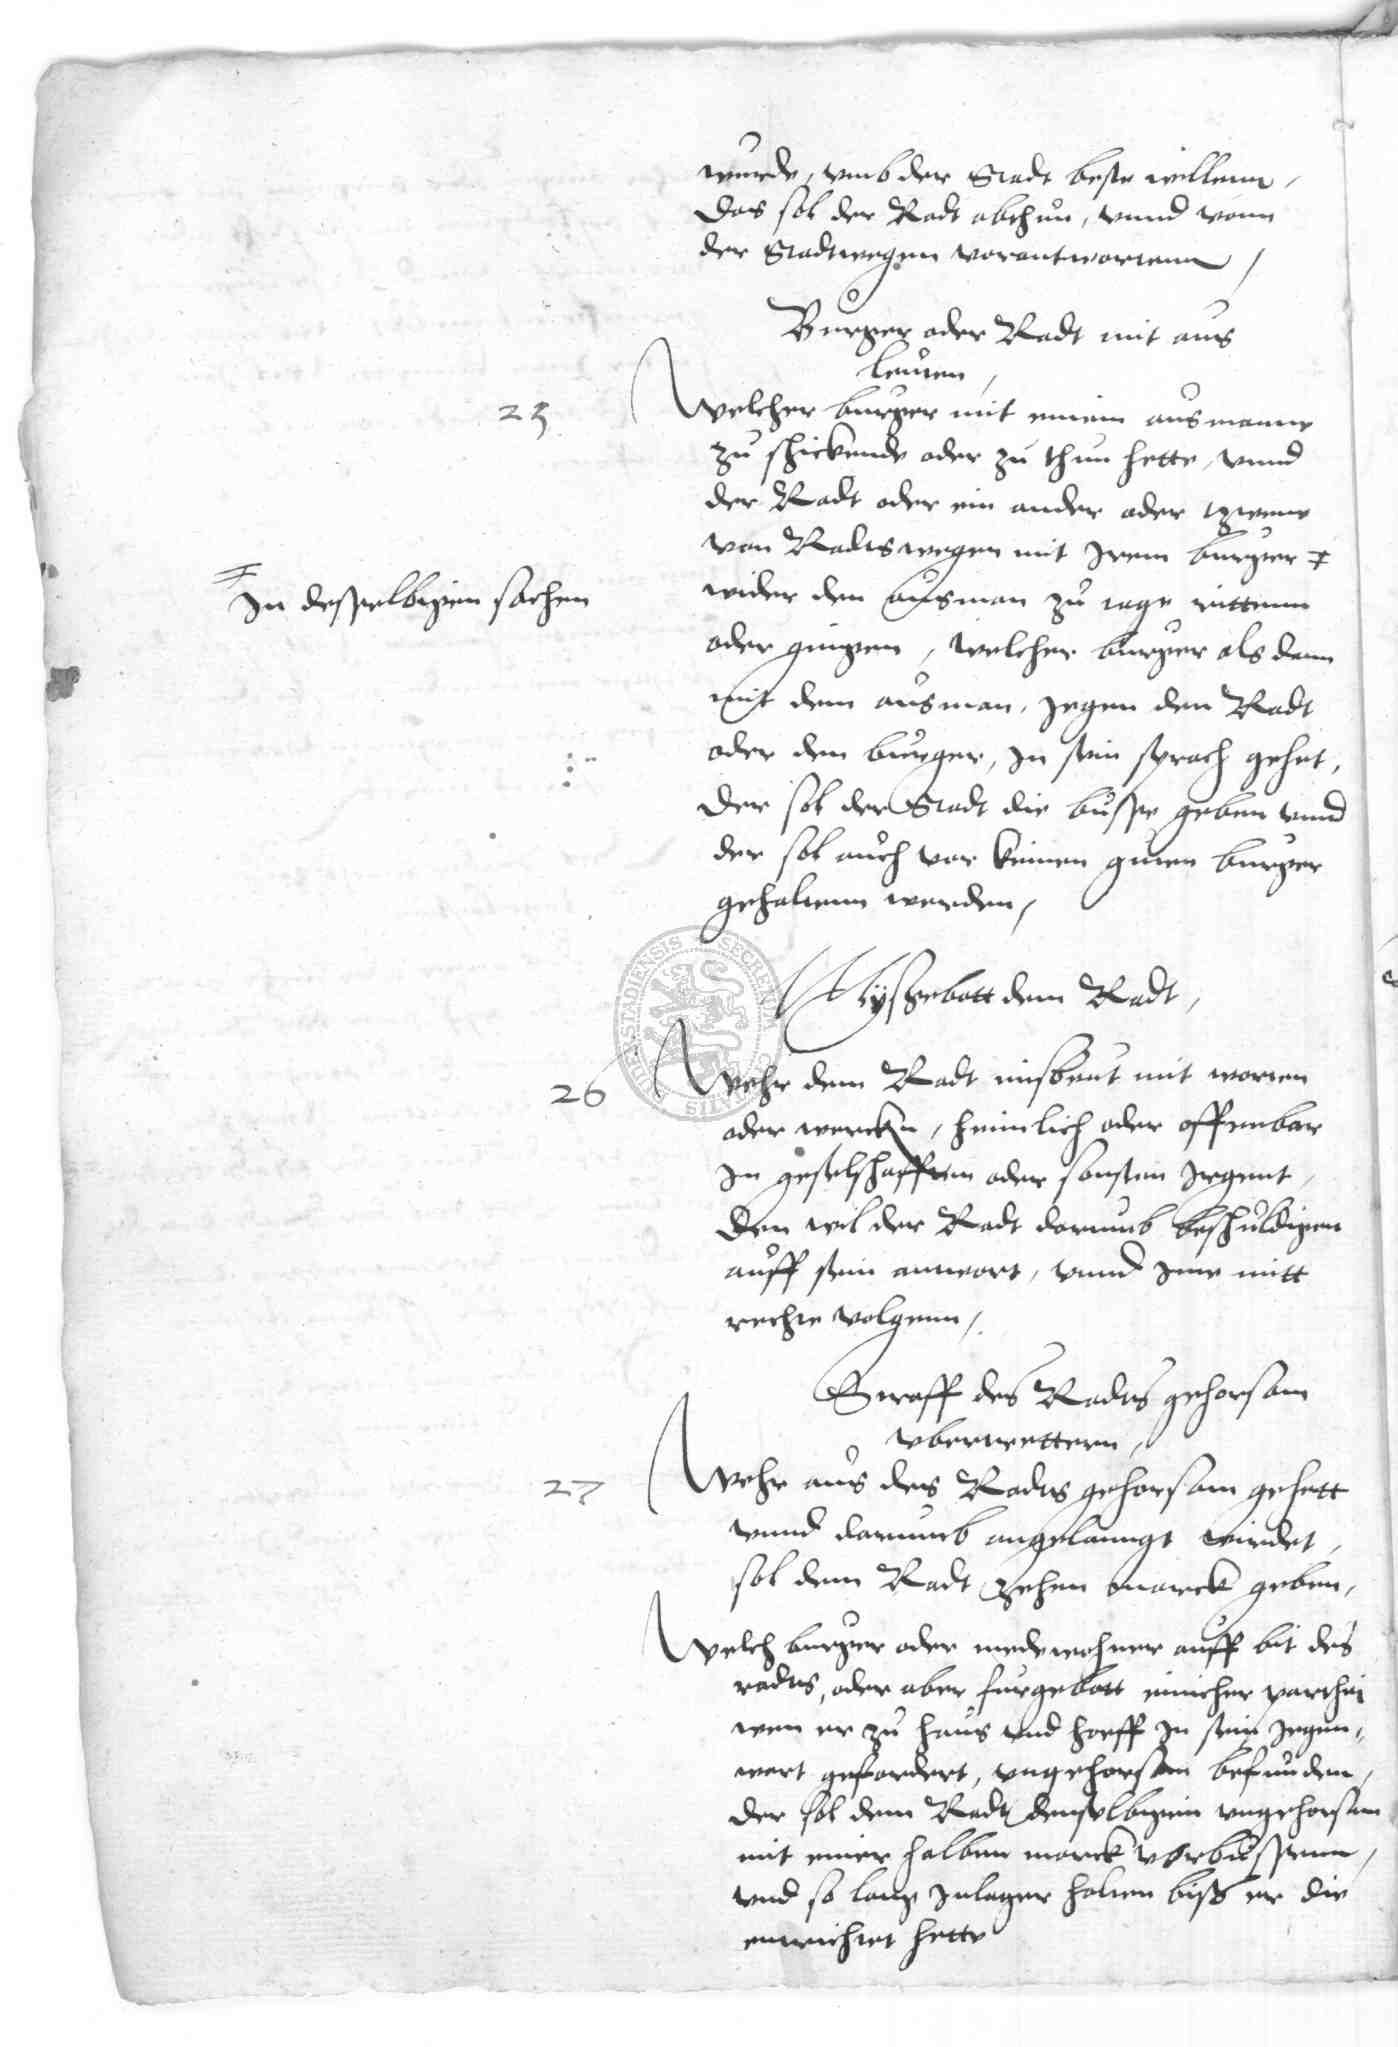 wurde, vmb der Stadt beste willenn,
Das sol der Radt abthun, vnnd vonn
der Stadtwegen vorantwortenn,
Burger oder Radt mit aus
leuten,
23
Welcher burger mit einem ausmanne
zu schickende oder zu thun hette, vnnd
der Radt oder ein ander oder tzwene
von Radtswegen mit Jrem burger ‡
‡ Jn desselbigen sachen
wider den ausman zu tage rittenn
oder gingen, welcher burger als dann
mit dem ausman, jegen den Radt
oder den burger, Jn sein sprach gehet,
Der sol der Stadt die busse geben vnnd
der sol auch vor keinen guten burger
gehaltenn werden,
Myssebott dem Radt,
26
Wehr dem Radt misbeut mit worten
oder wercken, heimlich oder offenbar
Jn geselschafften oder sonsten Jrgent,
Den wil der Radt darumb beschuldigen
auff sein antwort, vnnd Jme mitt
rechte volgenn,
Straff des Radts gehorsam
vbertrettern,
27
Wehr aus des Radts gehorsam gehett
vnnd darumb angelanngt wirdet,
sol dem Radt zehen marck geben,
Welch burger oder medewohner auff bit des
radts, oder aber furgebott einicher parthei
wen er zu haus vnd hoeff Jn sein jegen,,
wert gefordert, vngehorsam befunden,
der sol dem Radt denselbigen vngehorsam
mit einer halben marck vorbussenn,
vnd so lang Jnlager halten biss er die
entrichtet hette
SECRETUM CIVITATIS HILDENSTADIENSIS